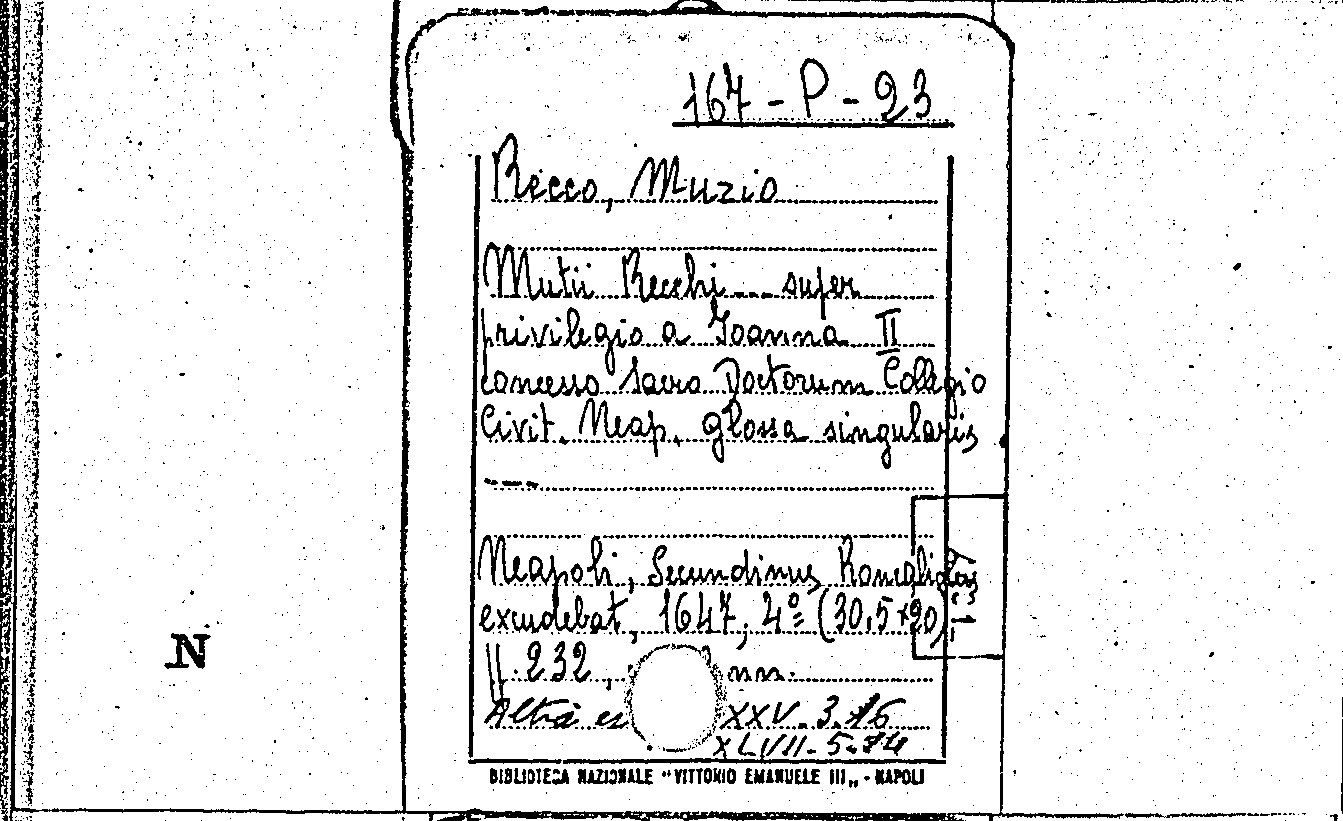 167-P-23
Recco, Muzio
Mutii Recchi --- super
privilegio a Joanna II
concesso Sacro Doctorum Collegio
Civit. Neap. glossa singularis
----
Neapoli, Secundinus
excudebat, 1647, 4º (30,5x20)
pp. 232, nn.
Altra es XXV. 3. 16
XLVII-5.
BIBLIOTECA NAZIONALE "VITTORIO EMANUELE III„ - NAPOLI
N